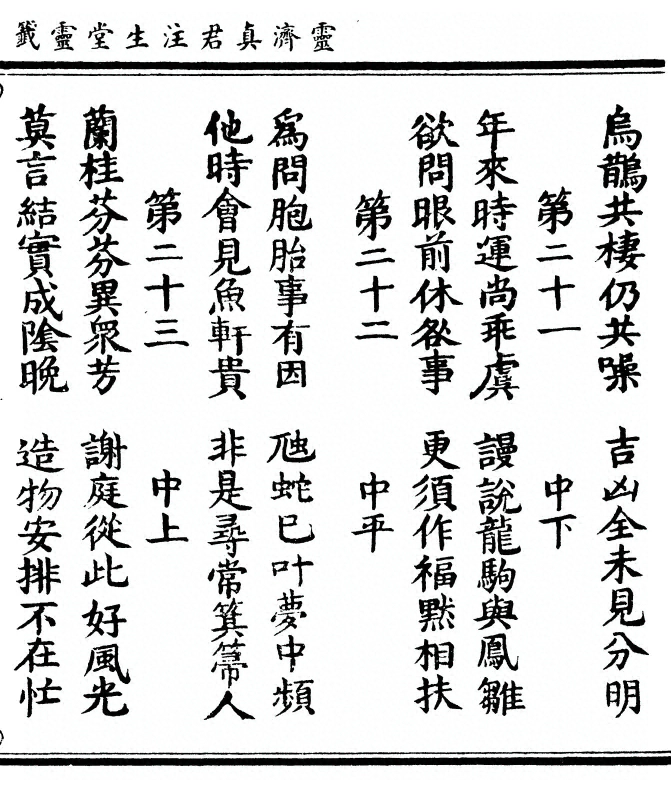 靈濟真君注生堂靈籤
烏鵲共棲仍共噪 吉凶全未見分明
第二十一 中下
年來時運尚乖虞 謾說龍駒與鳳雛
欲問眼前休咎事 更須作福默相扶
第二十二 中平
爲問胞胎事有因 虺蛇已叶夢中頻
他時會見魚軒貴 非是尋常箕箒人
第二十三 中上
蘭桂芬芬異眾芳 謝庭從此好風光
莫言結實成陰晚 造物安排不在忙